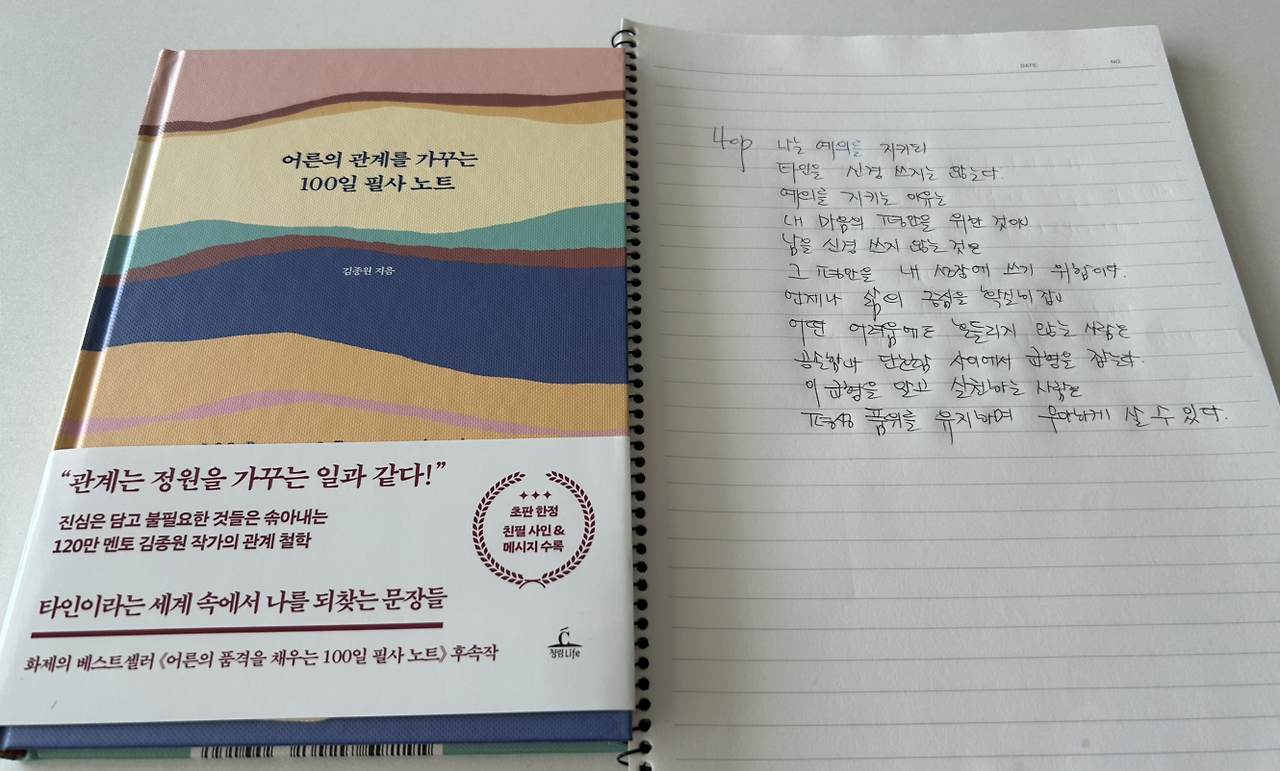 어른의 관계를 가꾸는
100일 필사 노트
김종원 지음
“관계는 정원을 가꾸는 일과 같다!”
진심은 담고 불필요한 것들은 솎아내는
120만 멘토 김종원 작가의 관계 철학
초판 한정
친필 사인 &
메시지 수록
타인이라는 세계 속에서 나를 되찾는 문장들
화제의 베스트셀러 《어른의 품격을 채우는 100일 필사 노트》 후속작
청림Life
DATE NO.
40p 나는 예의를 지키되
타인을 신경 쓰지는 않는다.
예의를 지키는 이유는
내 마음의 평안을 위한 것이며
남을 신경 쓰지 않는 것은
그 평안을 내 성장에 쓰기 위함이다.
언제나 삶의 중심을 확실히 잡고
어떤 어려움에도 흔들리지 않는 사람은
공손함과 단단함 사이에서 균형을 잡는다.
이 균형을 알고 실천하는 사람은
평생 품위를 유지하며 우아하게 살 수 있다.